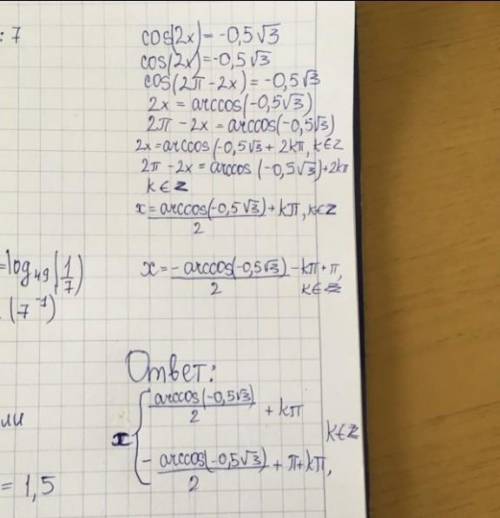 : 7
cos(2x) = -0,5√3
cos(2x) = -0,5√3
cos(2π - 2x) = -0,5√3
2x = arccos(-0,5√3)
2π - 2x = arccos(-0,5√3)
2x = arccos(-0,5√3 + 2kπ, k∈Z
2π - 2x = arccos (-0,5√3) + 2kπ
k∈Z
x = arccos(-0,5√3)/2 + kπ, k∈Z
= log₄₉(1/7)
(7⁻¹)
x = -arccos(-0,5√3)/2 - kπ + π,
k∈Z
Ответ:
x { arccos(-0,5√3)/2 + kπ
- arccos(-0,5√3)/2 + π + kπ, k∈Z
ли
= 1,5